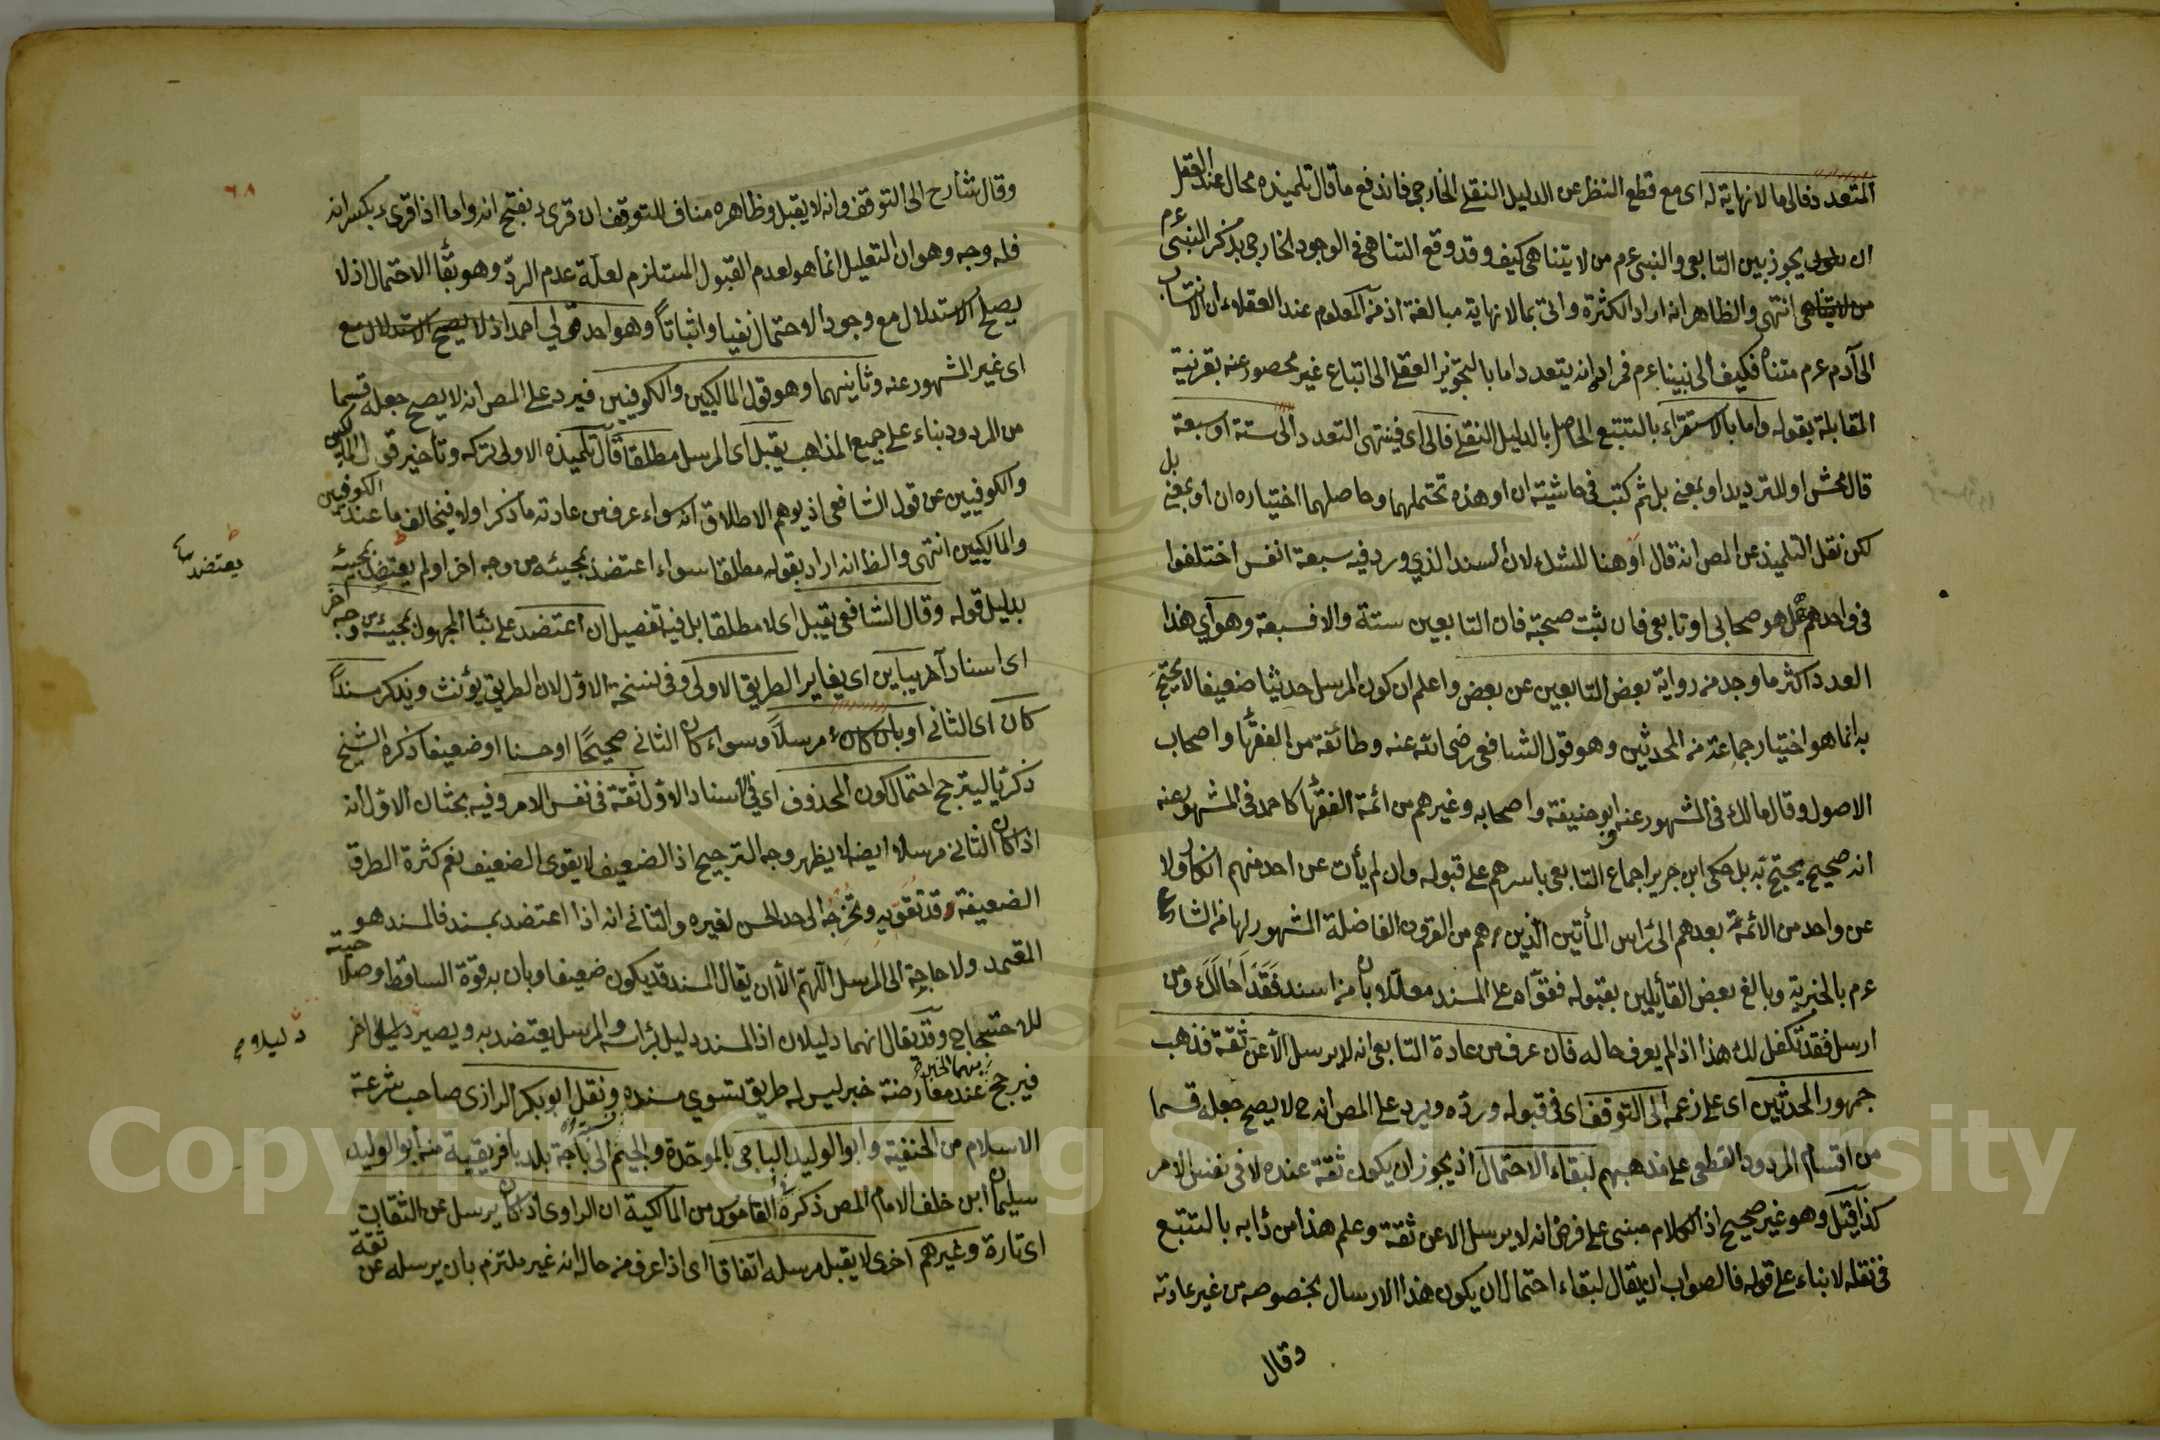 المتعدد فالى ما لا نهاية له اى مع قطع النظر عن الدليل النقلي الخارجي فاندفع ما قال تلميذه محال عند العقل
ان يجوز بين التابعى والنبى عم من لا يتناهى كيف وقد وقع التناهى فى الوجود الخارجي بذكر النبى عم
انتهى والظاهر انه اراد الكثرة واتى بما لا نهاية مبالغة اذ من المعلوم عند العقلاء ان الانتساب
الى آدم عم متناه فكيف الى نبينا عم فمراده انه يتعدد اما بالتجويز العقلي الى اتباع غير محصور عنه بقرنية
المقابلة بقوله واما بالاستقراء بالتتبع الحاصل بالدليل النقلي فالى اى فينتهى التعدد الى ستة او سبعة
قال محش او للترديد او بمعنى بل ثم كتب فى حاشيته ان او هذه تحتملهما وحاصلهما اختياره ان او بمعنى بل
لكن نقل التلميذ عن المص انه قال او هنا للشك لان السند الذي ورد فيه سبعة انفس اختلفوا
فى واحدهم هل هو صحابى او تابعى فان ثبت صحبته فان التابعين ستة والا فسبعة وهو اى هذا
العدد اكثر ما وجد من رواية بعض التابعين عن بعض واعلم ان كون المرسل حديثا ضعيفا لا يحتج
به انما هو اختيار جماعة من المحدثين وهو قول الشافعى رضى الله عنه وطائفة من الفقها واصحاب
الاصول وقال مالك فى المشهور عنه وابو حنيفة واصحابه وغيرهم من ائمة الفقها كاحمد فى المشهور عنه
انه صحيح يحتج به بل حكى ابن جرير اجماع التابعى باسرهم على قبوله وان لم يأت عن احد منهم انكاره ولا
عن واحد من الائمة بعدهم الى رأس المأتين الذين هم من القرون الفاضلة المشهور لها من الشارع
عم بالخيرية وبالغ بعض القائلين بقبوله فقواه على المسند معللا بان من اسند فقد احالك ومن
ارسل فقد تكفل لك هذا اذا لم يعرف حاله فان عرف من عادة التابعى انه لا يرسل الا عن ثقة فذهب
جمهور المحدثين اى على زعمه الى التوقف اى فى قبوله ورده ويرد على المص انه ح لا يصح جعله قسما
من اقسام المردود القطعى على مذهبهم لبقاء الاحتمال اذ يجوز ان يكون ثقة عنده لا فى نفس الامر
كذا قيل وهو غير صحيح اذ الكلام مبنى على فرض انه لا يرسل الا عن ثقة وعلم هذا من دابه بالتتبع
فى نقله لا بناء على قوله فالصواب ان يقال لبقاء احتمال ان يكون هذا الارسال بخصوصه من غير عادته
وقال
٦٨
وقال شارح الى التوقف وانه لا يقبل وظاهره مناف للتوقف ان قرىء بفتح انه واما اذا قرىء بكسر انه
فله وجه وهو ان التعليل انما هو لعدم القبول المستلزم لعلة عدم الرد وهو بقا الاحتمال اذ لا
يصح الاستدلال مع وجود الاحتمال نفيا واثباتا وهو احد قولي احمد اذ لا يصح الاستدلال مع
اى غير المشهور عنه وثانيهما وهو قول المالكيين والكوفيين فيرد على المص انه لا يصح جعله قسما
من المردود بناء على جميع المذاهب يقبل اى المرسل مطلقا قال تلميذه الاولى تركه وتأخير قول المالكيين
والكوفيين عن قول الشافعى اذ يوهم الاطلاق انه سواء عرف من عادته ما ذكر او لا فيخالف ما عند الكوفيين
والمالكيين انتهى والظ انه اراد بقوله مطلقا سواء اعتضد بمجيئه من وجه اخر او لم يعتضد بمجيئه
يعتضد
بدليل قوله وقال الشافعى يقبل اى لا مطلقا بل فيه تفصيل ان اعتضد على بنا المجهول بمجيئه من وجه آخر
اى اسناد آخر يباين اى يغاير الطريق الاولى وفى نسخة الاول لان الطريق يؤنث ويذكر مسندا
كان اى الثانى او بان كان مرسلا وسواء كان الثانى صحيحا او حسنا او ضعيفا ذكره الشيخ
ذكريا ليترجح احتمال كون المحذوف اى فى اسناد الاول ثقة فى نفس الامر وفيه بحثان الاول انه
اذا كان الثانى مرسلا ايضا لا يظهر وجه الترجيح اذ الضعيف لا يقوى الضعيف نعم كثرة الطرق
الضعيفة قد تقويه وتخرجه الى حد الحسن لغيره والثانى انه اذا اعتضد بمسند فالمسند هو
المعتمد ولا حاجة الى المرسل اللهم الا ان يقال المسند قد يكون ضعيفا وبان به قوة الساقط وصلاحيته
للاحتجاج وقد يقال انهما دليلان اذ المسند دليل برأسه والمرسل يعتضد به ويصير دليلا اخر
دليلا
فيرجح منهما الخبر عند معارضة خبر ليس له طريق تسوي مسنده ونقل ابو بكر الرازى صاحب شرعة
الاسلام من الحنفية وابو الوليد الباجى بالموحدة والجيم الى باجة بلد بافريقية منه ابو الوليد
سليمان ابن خلف الامام المص ذكره القاموس من المالكية ان الراوى اذا كان يرسل عن الثقات
اى تارة وغيرهم اخرى لا يقبل مرسله اتفاقا اى اذا عرف من حاله انه غير ملتزم بان يرسله عن ثقة
Copyright © King Saud University